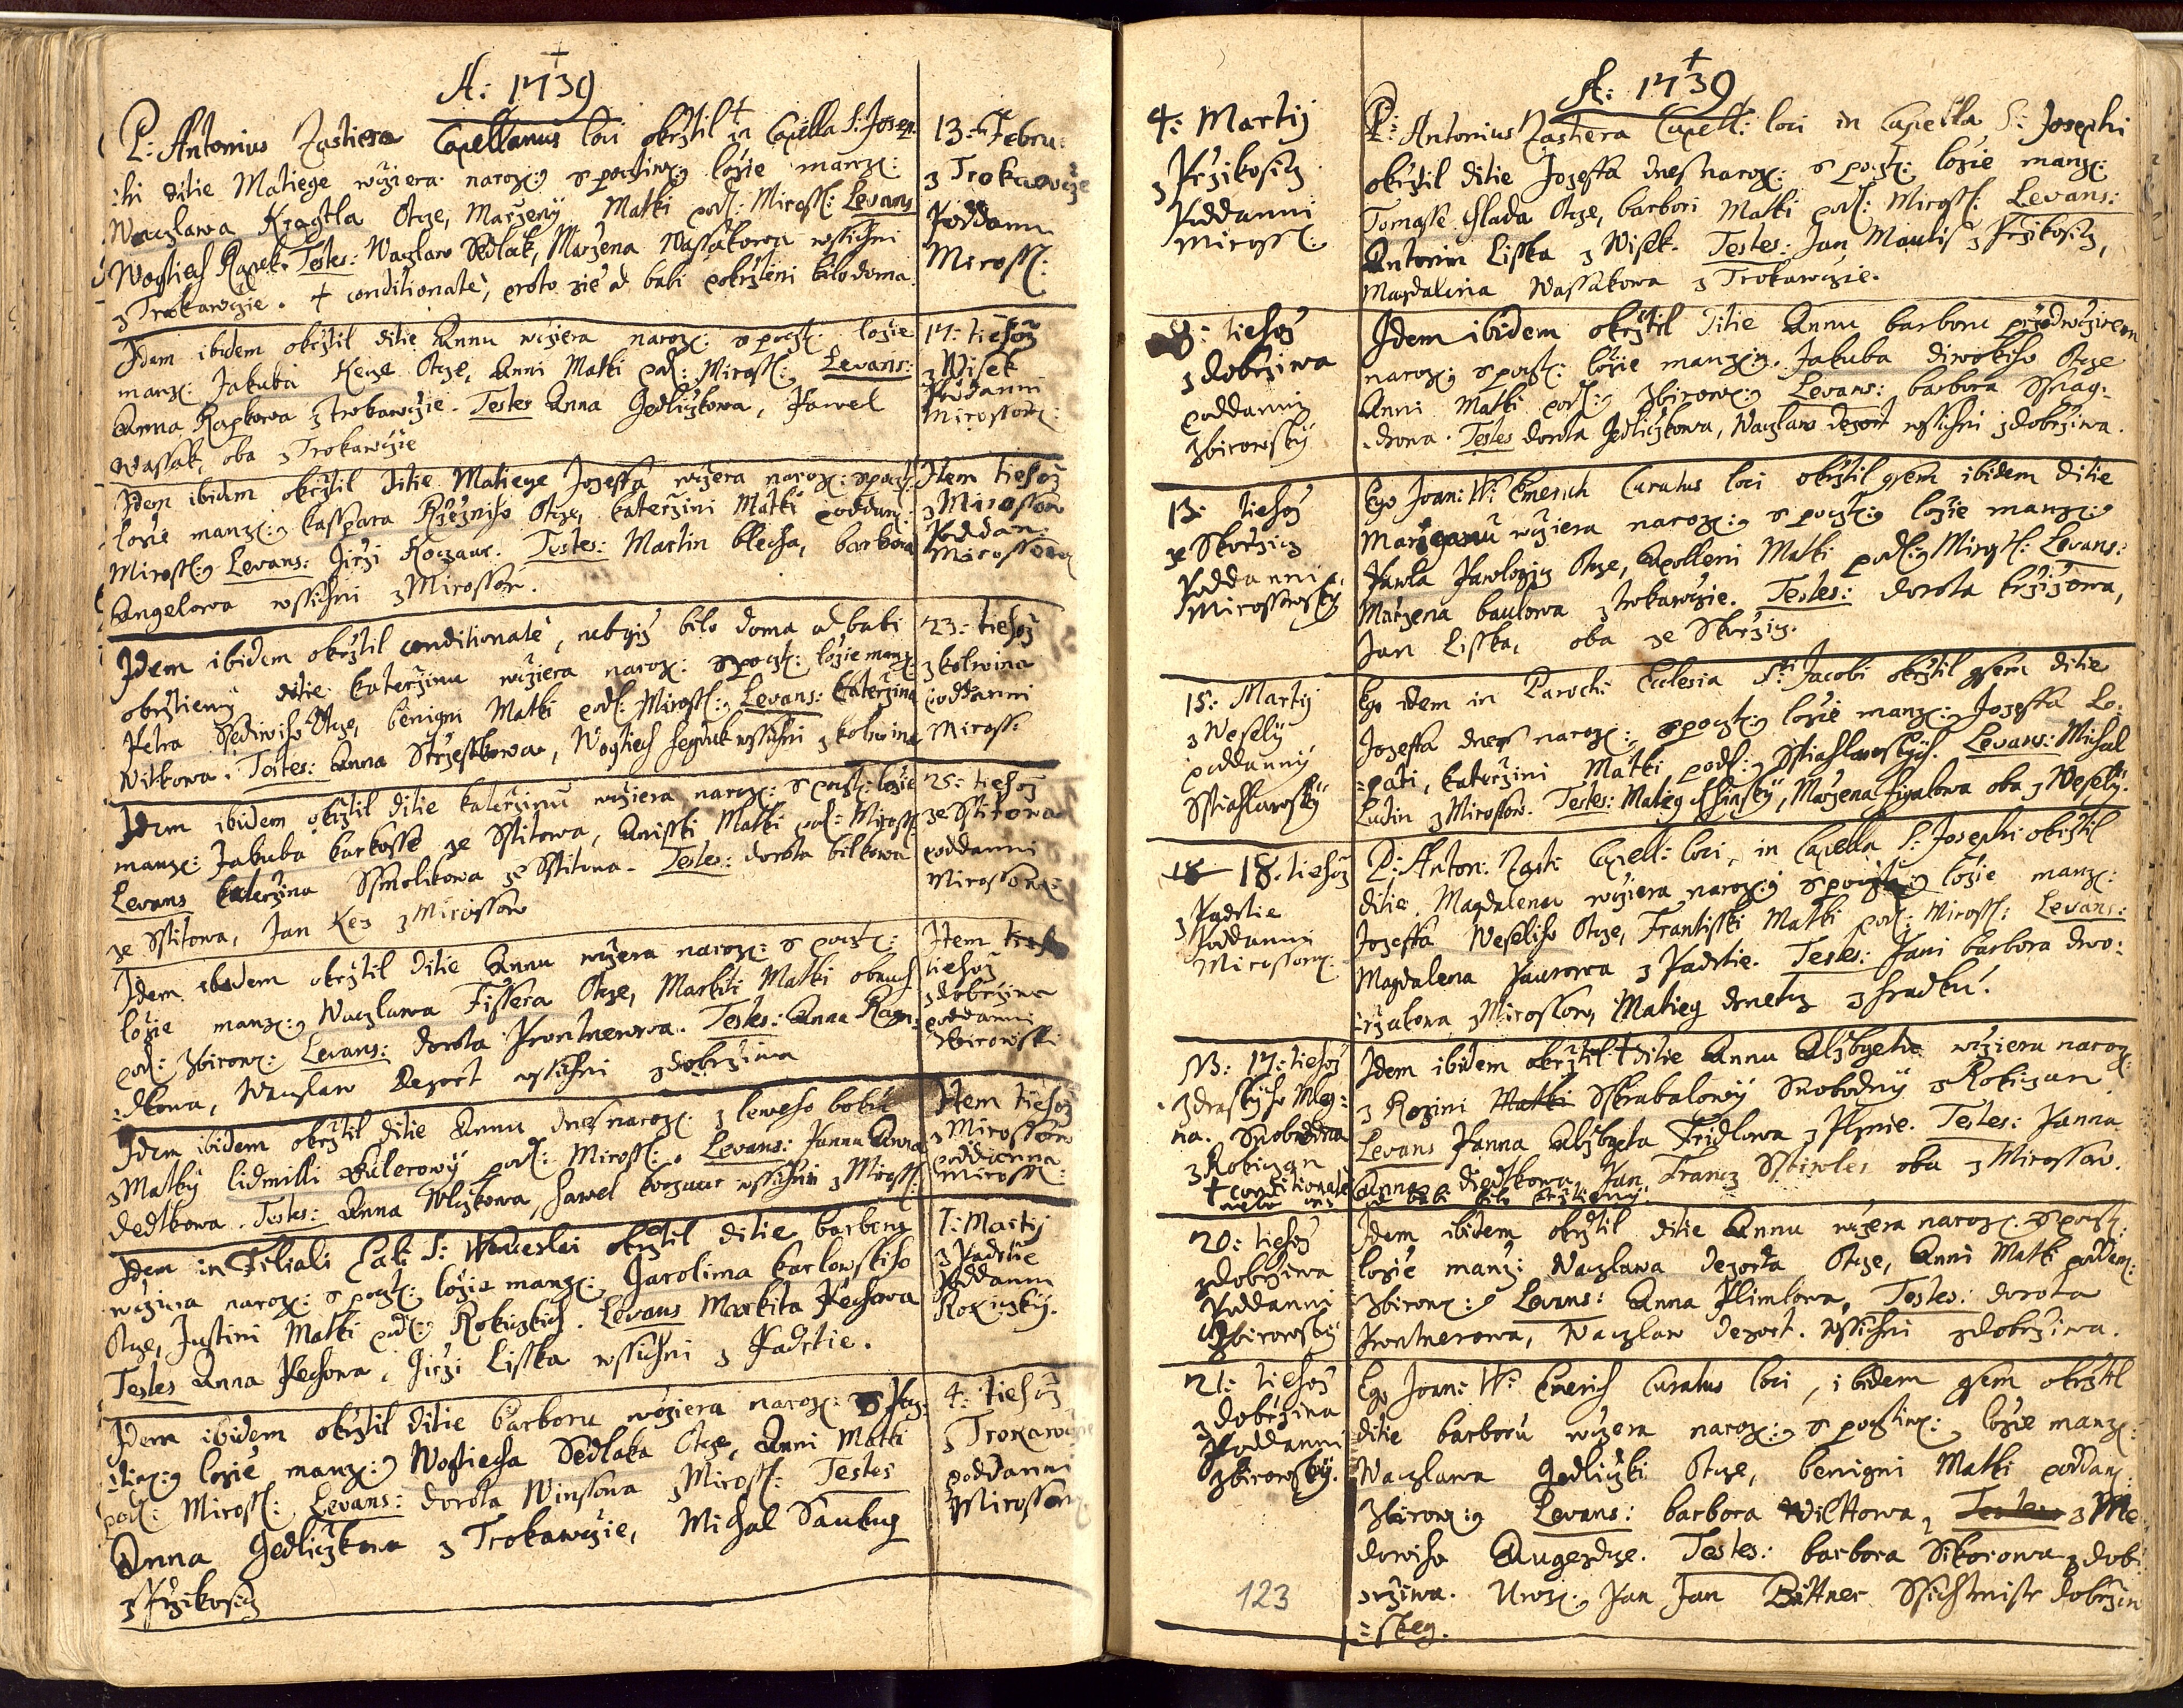 A: 1739
P: Antonius Zastiera Capellanus loci okrztil † in Capella S: Josep:
:hi ditie Matiege wcziera naroz: s pocztiwz: lozie manz:
Waczlawa Kragtla Otcze, Marzeny Matki pod: Miross: Levans
Wogtiech Rapek. Testes: Waczlaw Sedlak, Marzena Wassakowa wssichni
z Trokawczie. † conditionatè, proto zie od babi pokrzteni bilo doma.
13: Febru:
z Trokawczie
Poddanni
Miross:
Idem ibidem okrztil ditie Annu wcziera naroz: s poczt: lozie
manz: Jakuba Keze Otcze, Anni Matki pod: Miross: Levans:
Anna Rapkowa z trokawczie. Testes Anna Gedliczkowa, Pawel
Wassak, oba z Trokawczie
17: tiehoz
z Wisek
Poddanni
Mirossowz:
Idem ibidem okrztil ditie Matiege Jozeffa wcziera naroz: s poczt:
lozie manz: Kasspara Rzezniho Otcze, katerzini Matki poddanz:
Miross: Levans: Girzi Koczaur. Testes: Martin blecha, barbora
Angelowa wssichni z Mirossow.
Item tiehoz
z Mirossow
Poddan:
Mirossowz
Idem ibidem okrztil conditionatè, nebgiz bilo doma od babi
okrztieny ditie katerzinu wcziera naroz: s poczt: lozie manz:
Petra Ssediwiho Otcze, benigni Matki pod: Miross: Levans: Katerzina
Witkowa. Testes: Anna Strzestkowa, Wogtiech Hegduk wssichni z kolwina
23: tiehoz
z kolwina
poddanni
Miross:
Idem ibidem okrztil ditie katerzinu wcziera naroz: s poczt: lozie
manz: Jakuba karkosse ze Sstitowa, Anisski Matki pod: Miross:
Levans katerzina Ssmolikowa ze Sstitowa. Testes: dorota bilkowa
ze Sstitowa, Jan Kez z Mirossow
25: tiehoz
ze Sstitowa
poddanni
Mirossowz:
Idem ibidem okrztil ditie Annu wczera naroz: s poczt:
lozie manz: Waczlawa Fissera Otcze, Markiti Matki obauch
pod: Zbirowz: Levans: dorota Prontnerowa. Testes: Anna Ragn:
:dlowa, Waczlaw Dezort wssichni z dobrziwa
Item
tiehoz
z dobrziwa
poddanni
Zbirowsski
Idem ibidem okrztil ditie Annu dnes naroz: z leweho boku
z Matky lidmilli Aulerowy pod: Miross: Levans: Panna Anna
dedtkowa. Testes: Anna Wlczkowa, Hawel koczaur wssichni z Miross:
Item tiehoz
z Mirossow
poddanna
Miross:
Idem in Filiali S: Wenceslai okrztil ditie barboru
wcziera naroz: s poczt: lozie manz: Jarolima karlowskiho
Otcze, Justini Matki pod: Rokiczkich. Levans Markita Pechowa
Testes Anna Pechowa, Girzi Lisska wssichni z Padrtie.
1: Martij
z Padrtie
Poddanni
Rokiczky.
Idem ibidem okrztil ditie barboru wcziera naroz: s pocz:
:tiwz: lozie manz: Wogtiecha Sedlaka Otcze, Anni Matki
pod: Miross: Levans: dorota Winssowa z Miross: Testes
Anna Gedliczkowa z Trokawczie, Michal Saukup
z Przikosicz
4: tiehoz
z Trokawczie
poddanni
Mirossowz
A: 1739
4: Martij
z Przikosicz
Poddanni
Miross:
P: Antonius Zastiera Capell: loci in Capella S: Josephi
okrztil ditie Jozeffa dnes naroz: s poczt: lozie manz:
Tomasse Hlada Otcze, barbori Matki pod: Miross: Levans:
Antonin Lisska z Wisek. Testes: Jan Maulis z Przikosicz,
Magdalena Wassakowa z Trokawczie.
8: tiehoz
z dobrziwa
poddanni
Zbirowsky
Idem ibidem okrztil ditie Annu barboru przedwczirem
naroz: s poczt: lozie manz: Jakuba diwokiho Otcze
Anni Matki pod: Zbirowz: Levans: barbora Ssnag:
:drowa. Testes dorota Gedliczkowa, Waczlaw dezort wssichni z dobrziwa.
13: tiehoz
ze Skorzicz
Poddanni
Mirossowsky
Ego Joan: W: Emerich Curatus loci okrztil gsem ibidem ditie
Marzanu wcziera naroz: s poczt: lozie manz:
Pawla Pawlogicz Otcze, Apolleni Matki pod: Miross: Levans:
Marzena baulowa z trokawczie. Testes: dorota krzizowa,
Jan Lisska, oba ze Skorzicz.
15: Martij
z Wesely
poddanny
Sstiahlawsky
Ego idem in Parochi Ecclesia S:ti Jacobi okrztil gsem ditie
Jozeffa dnes naroz: s poczt: lozie manz: Jozeffa Lo:
:pati, katerzini Matki pod: Sstiahlawskych. Levans: Michal
Ludin z Mirossow. Testes: Matieg Hlinsky, Marzena figalowa oba z Wesely.
18. tiehoz
z Padrtie
Poddanni
Mirossowz:
P: Anton: Zasti: Capell: loci, in Capella S: Josephi okrztil
ditie Magdalenu wcziera naroz: s poczt: lozie manz:
Jozeffa Weseliho Otcze, Frantisski Matki pod: Miross: Levans:
Magdalena Paurowa z Padrtie. Testes: Pani barbora dwo:
:rzakowa z Mirossow, Matieg drnetz z hradku.
NB: 17: tiehoz
z draskyho Mleg:
na. Swobodna
z Rokiczan
† conditionatè
Idem ibidem okrztil † ditie Annu Alzbyetu wcziera naroz:
z Rozini Matki Skrabalowy Swobodny z Rokiczan
Levans Panna Alzbyeta Fridlowa z Plznie. Testes: Panna
Anna diedkowa, Jan Francz Sstiwles oba z Mirossow.
od babi bilo krztieny.
20: tiehoz
z dobrziwa
Poddanni
Zbirowsky
Idem ibidem okrztil ditie Annu wczera naroz: s poczt:
lozie manz: Waczlawa Dezorta Otcze, Anni Matki poddan:
Zbirowz: Levans: Anna Klimtowa, Testes: dorota
Prontnerowa, Waczlaw dezort. wssichni z dobrziwa.
21: tiehoz
z dobrziwa
Poddanni
Zbirowsky.
Ego Joan: W: Emerich Curatus loci, ibidem gsem okrztil
ditie barboru wczera naroz: s pocztiwz: lozie manz:
Waczlawa Gedliczki Otcze, benigni Matki poddanz:
Zbirowz: Levans: barbora Wilttowa, Testes z Me:
dowiho Augezdcze. Testes: barbora Sikorowa z dob:
:rziwa. Uroz: Pan Jan Bittner Ssichmistr dobrziw
:skeg.
123